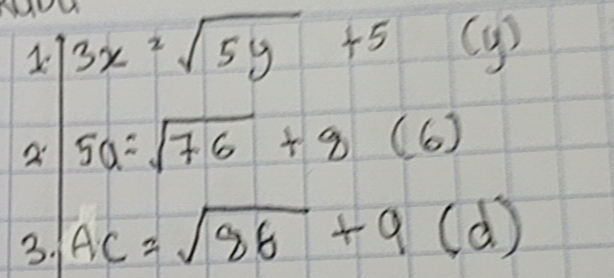 1. 3x = √5y + 5 (y)
2. 5a = √76 + 8 (6)
3. AC = √86 + 9 (d)